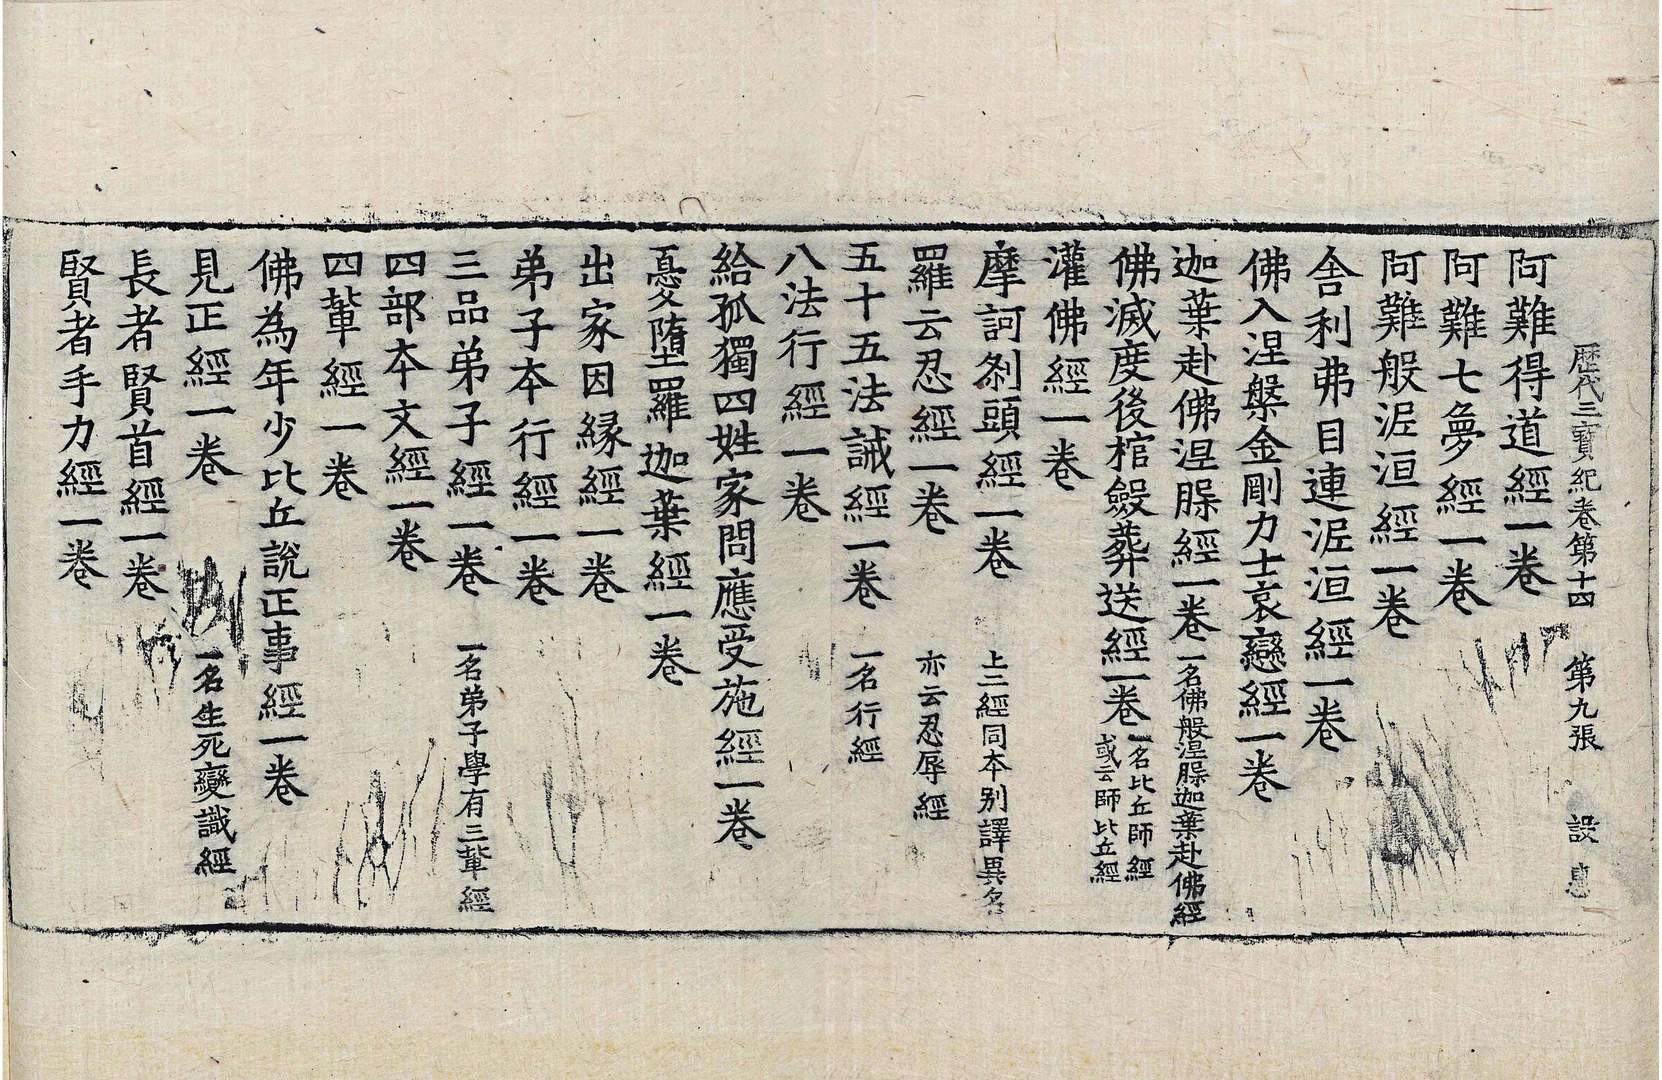 歷代三寶紀卷第十四 第九張 設
阿難得道經一卷
阿難七夢經一卷
阿難般泥洹經一卷
舍利弗目連泥洹經一卷
佛入涅槃金剛力士哀戀經一卷
迦葉赴佛涅臊經一卷 一名佛般涅臊迦葉赴佛經
佛滅度後棺斂葬送經一卷 一名比丘師經
或云師比丘經
灌佛經一卷
摩訶剎頭經一卷 上二經同本別譯異名
羅云忍經一卷 亦云忍辱經
五十五法誡經一卷 一名行經
八法行經一卷
給孤獨四姓家問應受施經一卷
憂墮羅迦葉經一卷
出家因緣經一卷
弟子本行經一卷
三品弟子經一卷 一名弟子學有三輩經
四部本文經一卷
四輩經一卷
佛為年少比丘說正事經一卷
見正經一卷 一名生死變識經
長者賢首經一卷
賢者手力經一卷